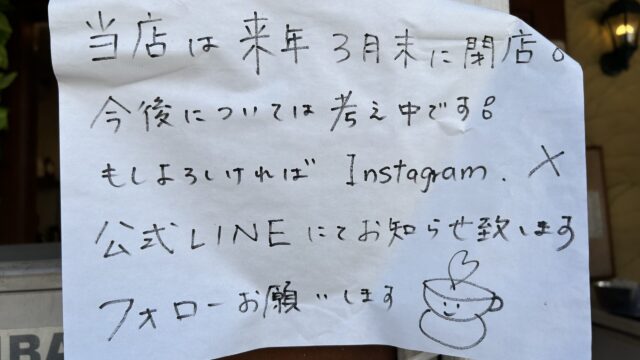 当店は来年3月末に閉店。
今後については考え中です。
もしよろしければ Instagram. X
公式LINEにてお知らせ致します
フォローお願いします
BA